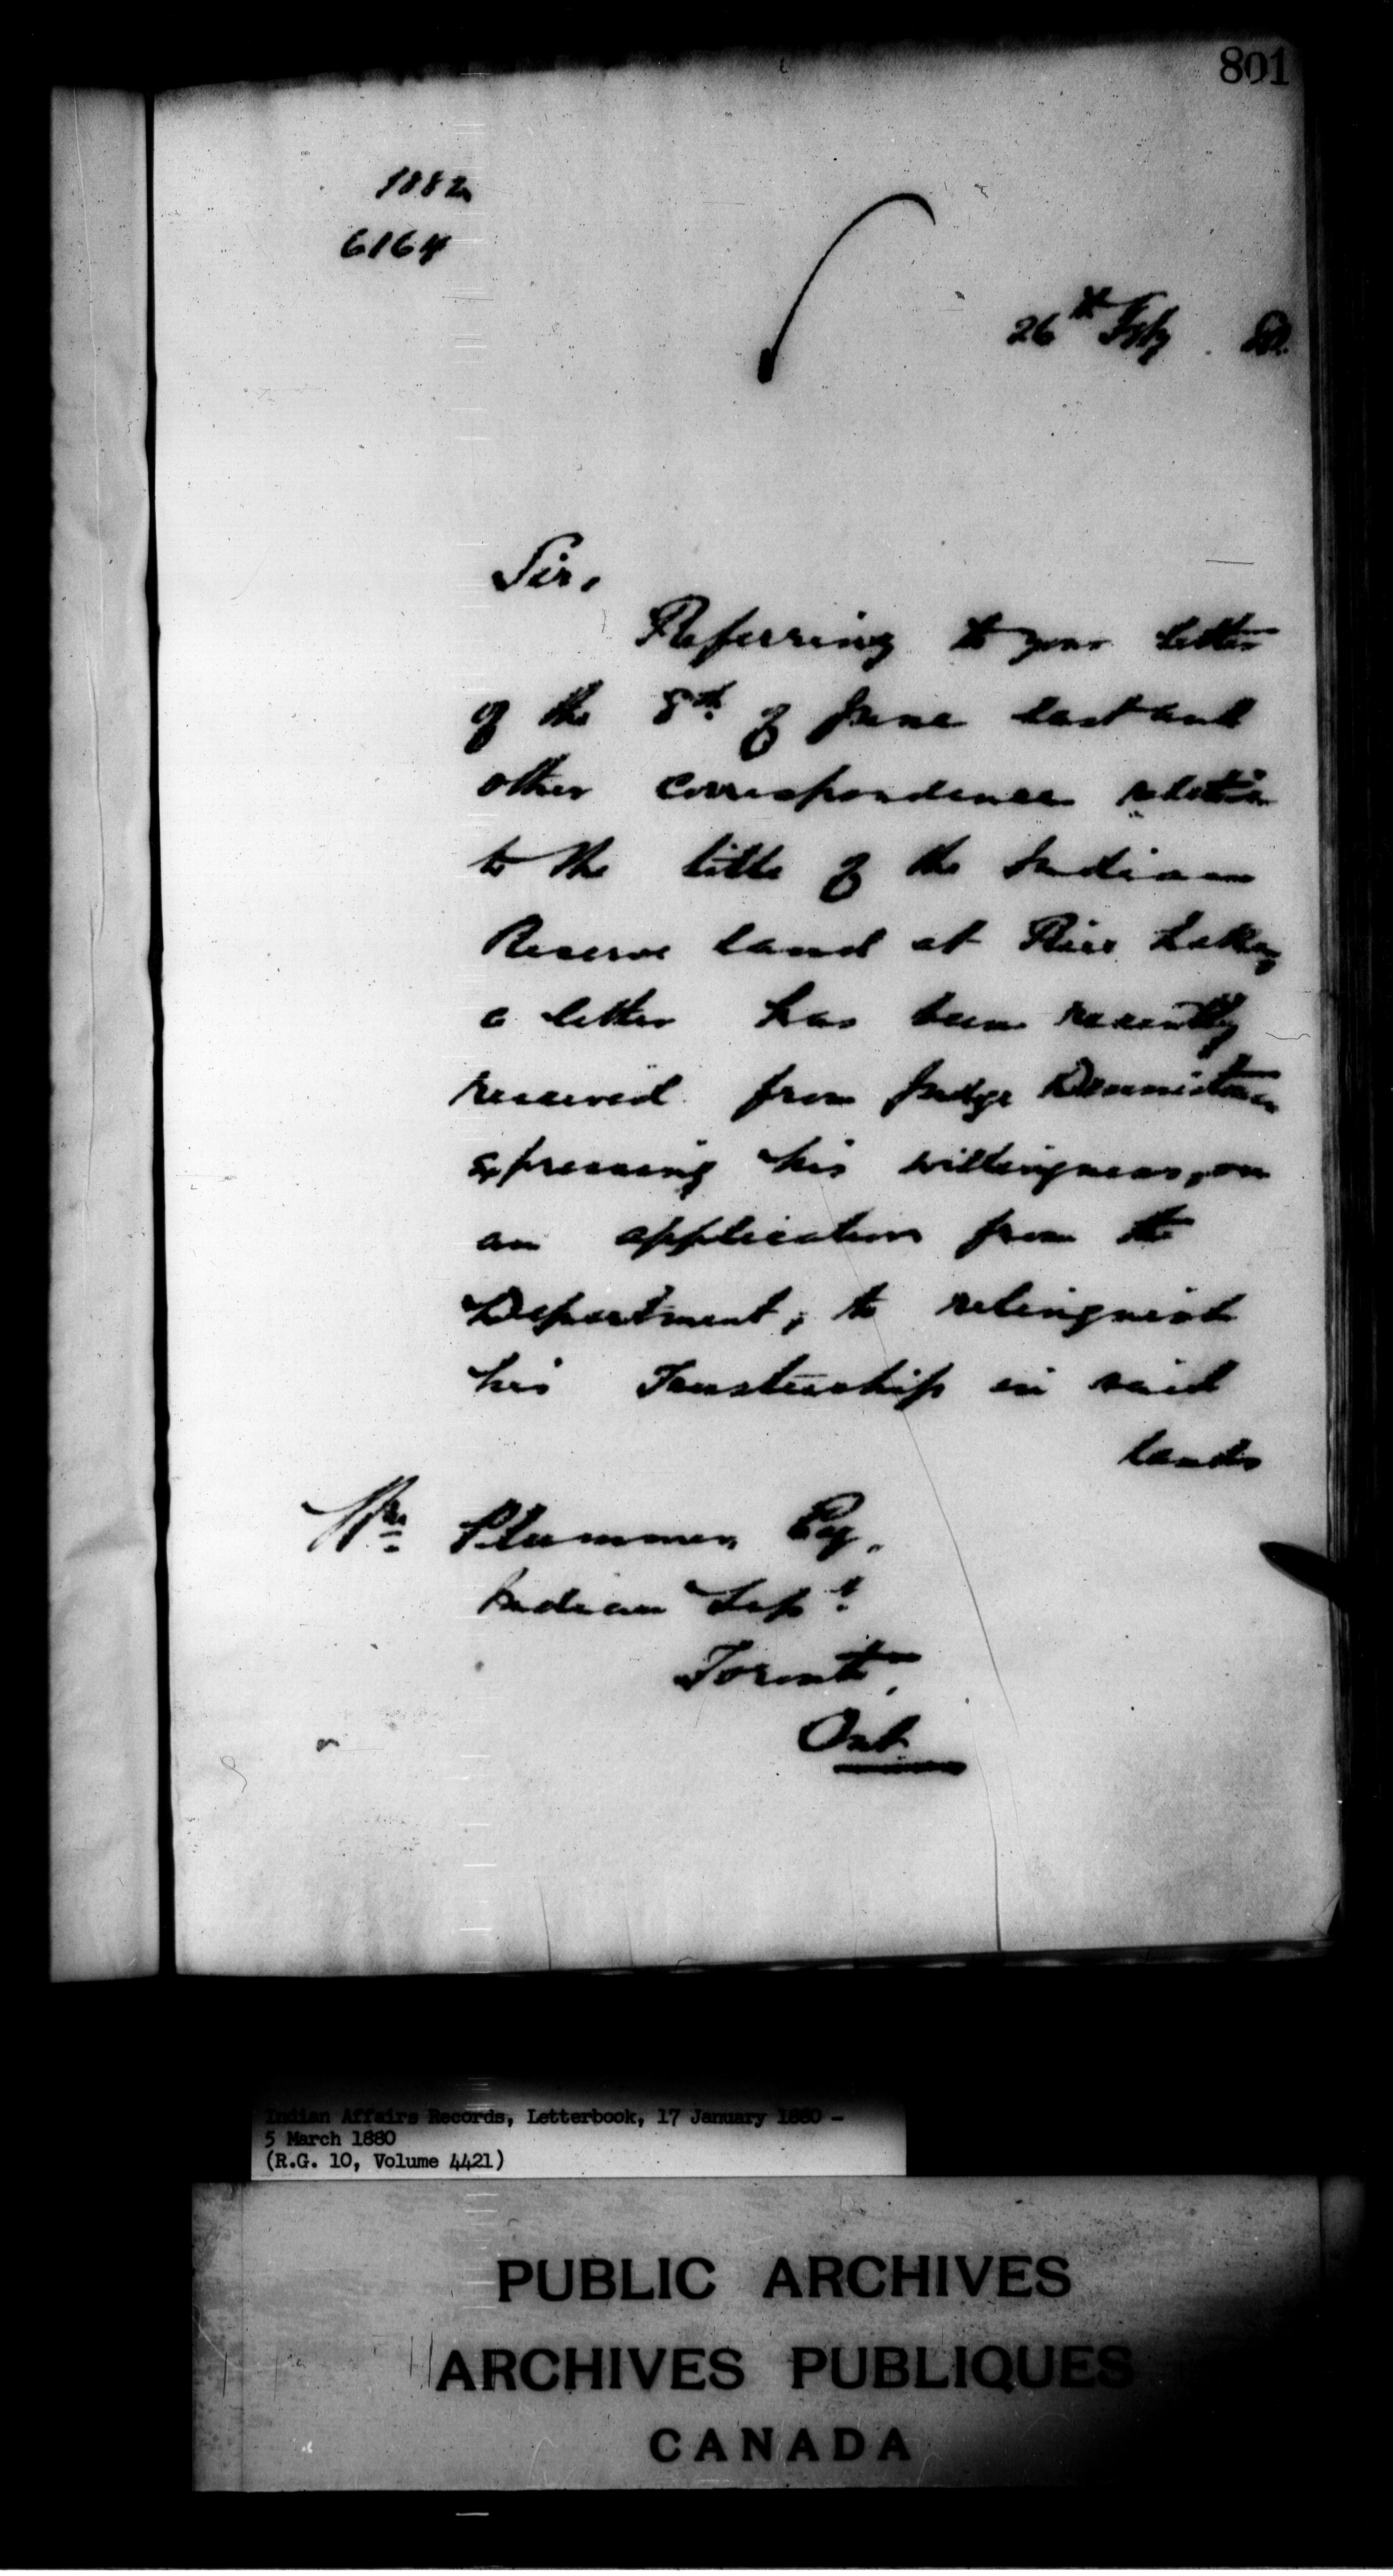 801
1882
6164
26th Feby 80.
Sir,
Referring to your letter
of the 8th of June last and
other correspondence relative
to the title of the Indian
Reserve land at Rice Lake,
a letter has been recently
received from Judge Dennistoun
expressing his willingness, on
an application from the
Department, to relinquish
his Trusteeship in said
lands
Wm Plummer, Esq.
Indian Supt.
Toronto,
Ont.
Indian Affairs Records, Letterbook, 17 January 1880 -
5 March 1880
(R.G. 10, Volume 4421)
PUBLIC ARCHIVES
ARCHIVES PUBLIQUES
CANADA